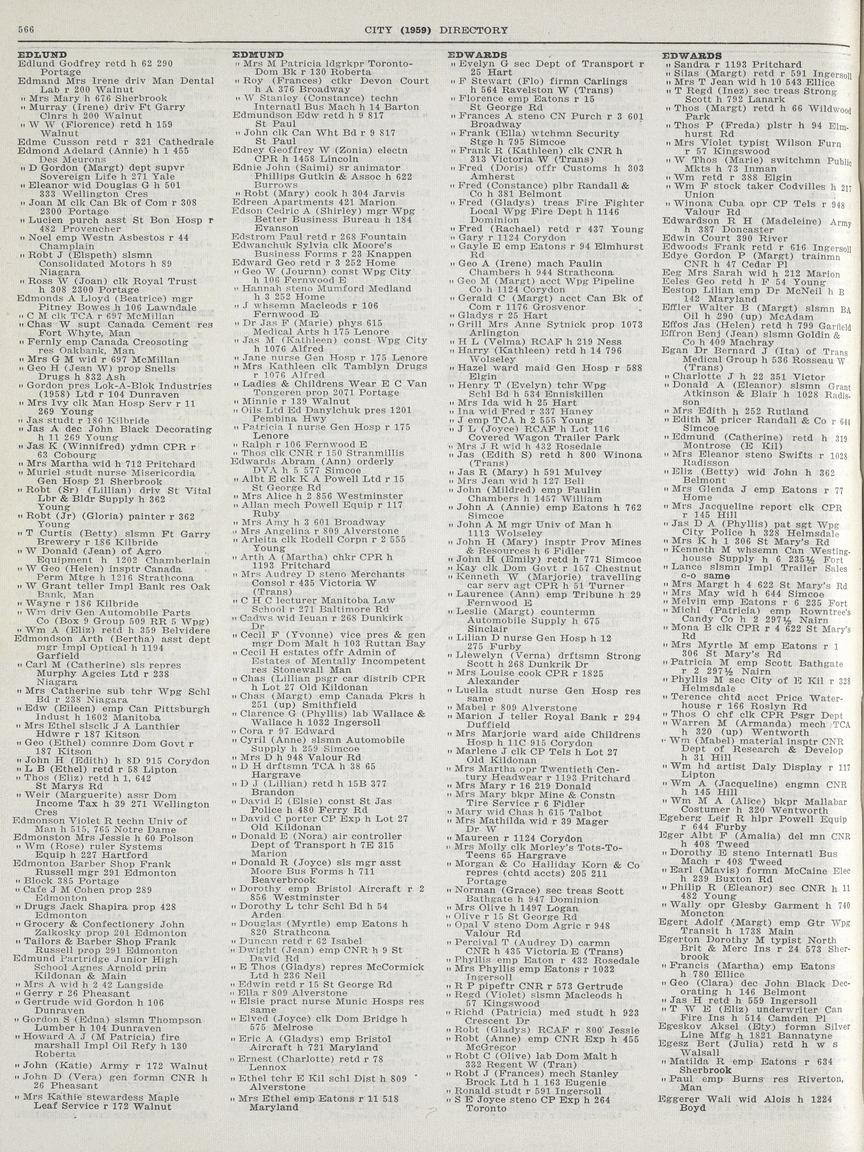 566
CITY (1959) DIRECTORY
EDLUND
Edlund Godfrey retd h 62 290
Portage
Edmand Mrs Irene driv Man Dental
Lab r 200 Walnut
" Mrs Mary h 676 Sherbrook
" Murray (Irene) driv Ft Garry
Clnrs h 200 Walnut
" W W (Florence) retd h 159
Walnut
Edme Cusson retd r 321 Cathedrale
Edmond Adelard (Annie) h 1 455
Des Meurons
" D Gordon (Margt) dept supvr
Sovereign Life h 271 Yale
" Eleanor wid Douglas G h 501
333 Wellington Cres
" Joan M clk Can Bk of Com r 308
2300 Portage
" Lucien purch asst St Bon Hosp r
482 Provencher
" Noel emp Westn Asbestos r 44
Champlain
" Robt J (Elspeth) slsmn
Consolidated Motors h 89
Niagara
" Ross W (Joan) clk Royal Trust
h 308 2300 Portage
Edmonds A Lloyd (Beatrice) mgr
Pitney Bowes h 106 Lawndale
" C M clk TCA r 697 McMillan
" Chas W supt Canada Cement res
Fort Whyte, Man
" Fernly emp Canada Creosoting
res Oakbank, Man
" Mrs G M wid r 697 McMillan
" Geo H (Jean W) prop Snells
Drugs h 832 Ash
" Gordon pres Lok-A-Blok Industries
(1958) Ltd r 104 Dunraven
" Mrs Ivy clk Man Hosp Serv r 11
269 Young
" Jas studt r 186 Kilbride
" Jas A dec John Black Decorating
h 11 269 Young
" Jas K (Winnifred) ydmn CPR r
63 Cobourg
" Mrs Martha wid h 712 Pritchard
" Muriel studt nurse Misericordia
Gen Hosp 21 Sherbrook
" Robt (Sr) (Lillian) driv St Vital
Lbr & Bldr Supply h 362
Young
" Robt (Jr) (Gloria) painter r 362
Young
" T Curtis (Betty) slsmn Ft Garry
Brewery r 186 Kilbride
" W Donald (Jean) of Agro
Equipment h 1202 Chamberlain
" W Geo (Helen) insptr Canada
Perm Mtge h 1216 Strathcona
" W Grant teller Impl Bank res Oak
Bank, Man
" Wayne r 186 Kilbride
" Wm driv Gen Automobile Parts
Co (Box 9 Group 509 RR 5 Wpg)
" Wm A (Eliz) retd h 359 Belvidere
Edmondson Arth (Bertha) asst dept
mgr Impl Optical h 1194
Garfield
" Carl M (Catherine) sls repres
Murphy Agcies Ltd r 238
Niagara
" Mrs Catherine sub tchr Wpg Schl
Bd r 238 Niagara
" Edw (Eileen) emp Can Pittsburg
Indust h 1602 Manitoba
" Mrs Ethel slsclk J A Lanthier
Hdwre r 187 Kitson
" Geo (Ethel) comnre Dom Govt r
187 Kitson
" John H (Edith) h 8D 915 Corydon
" L B (Ethel) r 58 Lipton
" Thos (Eliz) retd h 1, 642
St Marys Rd
" Weir (Marguerite) assr Dom
Income Tax h 39 271 Wellington
Cres
Edmonson Violet R techn Univ of
Man h 515, 765 Notre Dame
Edmonston Mrs Jessie h 60 Polson
" Wm (Rose) ruler Systems
Equip h 227 Hartford
Edmonton Barber Shop Frank
Russell mgr 291 Edmonton
" Block 385 Portage
" Cafe J M Cohen prop 289
Edmonton
" Drugs Jack Shapira prop 428
Edmonton
" Grocery & Confectionery John
Zalkosky prop 201 Edmonton
" Tailors & Barber Shop Frank
Russell prop 291 Edmonton
Edmund Partridge Junior High
School Agnes Arnold prin
Kildonan & Main
" Mrs A wid h 2 42 Langside
" Gerry r 26 Pheasant
" Gertrude wid Gordon h 106
Dunraven
" Gordon S (Edna) slsmn Thompson
Lumber h 104 Dunraven
" Howard A J (M Patricia) fire
marshall Impl Oil Refy h 130
Roberta
" John (Katie) Army r 172 Walnut
" John D (Vera) gen formn CNR h
26 Pheasant
" Mrs Kathie stewardess Maple
Leaf Service r 172 Walnut
EDMUND
" Mrs M Patricia ldgrkpr Toronto-
Dom Bk r 130 Roberta
" Roy (Frances) ctkr Devon Court
h A 376 Broadway
" W Stanley (Constance) techn
Internatl Bus Mach h 14 Barton
Edmundson Edw retd h 9 817
St Paul
" John clk Can Wht Bd r 9 817
St Paul
Edney Geoffrey W (Zonia) electn
CPR h 1458 Lincoln
Ednie John (Saimi) sr animator
Phillips Gutkin & Assoc h 622
Burrows
" Robt (Mary) cook h 304 Jarvis
Edreen Apartments 421 Marion
Edson Cedric A (Shirley) mgr Wpg
Better Business Bureau h 184
Evanson
Edstrom Paul retd r 268 Fountain
Edwanchuk Sylvia clk Moore's
Business Forms r 23 Knappen
Edward Geo retd r 3 252 Home
" Geo W (Journn) const Wpg City
h 106 Fernwood E
" Hannah steno Mumford Medland
h 3 252 Home
" J whsemn Macleods r 106
Fernwood E
" Dr Jas F (Marie) phys 615
Medical Arts h 175 Lenore
" Jas M (Kathleen) const Wpg City
h 1076 Alfred
" Jane nurse Gen Hosp r 175 Lenore
" Mrs Kathleen clk Tamblyn Drugs
r 1076 Alfred
" Ladies & Childrens Wear E C Van
Tongeren prop 2071 Portage
" Minnie r 139 Walnut
" Oils Ltd Ed Danylchuk pres 1201
Pembina Hwy
" Patricia I nurse Gen Hosp r 175
Lenore
" Ralph r 106 Fernwood E
" Thos clk CNR r 150 Stranmillis
Edwards Abram (Ann) orderly
DVA h 5 577 Simcoe
" Albt E clk K A Powell Ltd r 15
St George Rd
" Mrs Alice h 2 856 Westminster
" Allan mech Powell Equip r 117
Ruby
" Mrs Amy h 3 601 Broadway
" Mrs Angelina r 809 Alverstone
" Arleita clk Rodell Corpn r 2 555
Young
" Arth A (Martha) chkr CPR h
1193 Pritchard
" Mrs Audrey D steno Merchants
Consol r 435 Victoria W
(Trans)
" C H C lecturer Manitoba Law
School r 271 Baltimore Rd
" Cadws wid Ieuan r 268 Dunkirk
Dr
" Cecil F (Yvonne) vice pres & gen
mgr Dom Malt h 103 Ruttan Bay
" Cecil H estates offr Admin of
Estates of Mentally Incompetent
res Stonewall Man
" Chas (Lillian) psgr car distrib CPR
h Lot 27 Old Kildonan
" Chas (Margt) emp Canada Pkrs h
251 (up) Smithfield
" Clarence G (Phyllis) lab Wallace &
Wallace h 1032 Ingersoll
" Cora r 97 Edward
" Cyril (Anne) slsmn Automobile
Supply h 259 Simcoe
" Mrs D h 948 Valour Rd
" D H drftsmn TCA h 38 65
Hargrave
" D J (Lillian) retd h 15B 377
Brandon
" David E (Elsie) const St Jas
Police h 480 Ferry Rd
" David C porter CP Exp h Lot 27
Old Kildonan
" Donald E (Nora) air controller
Dept of Transport h 7E 315
Marion
" Donald R (Joyce) sls mgr asst
Moore Bus Forms h 711
Beaverbrook
" Dorothy emp Bristol Aircraft r 2
856 Westminster
" Dorothy L tchr Schl Bd h 54
Arden
" Douglas (Myrtle) emp Eatons h
820 Strathcona
" Duncan retd r 62 Isabel
" Dwight (Jean) emp CNR h 9 St
David Rd
" E Thos (Gladys) repres McCormick
Ltd h 236 Neil
" Edwin retd r 15 St George Rd
" Ella r 809 Alverstone
" Elsie pract nurse Munic Hosps res
same
" Elved (Joyce) clk Dom Bridge h
575 Melrose
" Eric A (Gladys) emp Bristol
Aircraft h 721 Maryland
" Ernest (Charlotte) retd r 78
Lennox
" Ethel tchr E Kil schl Dist h 809
Alverstone
" Mrs Ethel emp Eatons r 11 518
Maryland
EDWARDS
" Evelyn G sec Dept of Transport r
25 Hart
" F Stewart (Flo) firmn Carlings
h 564 Ravelston W (Trans)
" Florence emp Eatons r 15
St George Rd
" Frances A steno CN Purch r 3 601
Broadway
" Frank (Ella) wtchmn Security
Stge h 795 Simcoe
" Frank R (Kathleen) clk CNR h
313 Victoria W (Trans)
" Fred (Doris) offr Customs h 303
Amherst
" Fred (Constance) plbr Randall &
Co h 381 Belmont
" Fred (Gladys) treas Fire Fighter
Local Wpg Fire Dept h 1146
Dominion
" Fred (Rachael) retd r 437 Young
" Gary r 1124 Corydon
" Gayle E emp Eatons r 94 Elmhurst
Rd
" Geo A (Irene) mach Paulin
Chambers h 944 Strathcona
" Geo M (Margt) acct Wpg Pipeline
Co h 1124 Corydon
" Gerald C (Margt) acct Can Bk of
Com r 1176 Grosvenor
" Gladys r 25 Hart
" Grill Mrs Anne Sytnick prop 1073
Arlington
" H L (Velma) RCAF h 219 Ness
" Harry (Kathleen) retd h 14 796
Wolseley
" Hazel ward maid Gen Hosp r 588
Elgin
" Henry T (Evelyn) tchr Wpg
Schl Bd h 534 Enniskillen
" Mrs Ida wid h 25 Hart
" Ina wid Fred r 337 Haney
" J emp TCA h 2 555 Young
" J L (Joyce) RCAF h Lot 116
Covered Wagon Trailer Park
" Mrs J R wid h 432 Rosedale
" Jas (Edith S) retd h 800 Winona
(Trans)
" Jas R (Mary) h 591 Mulvey
" Mrs Jean wid h 127 Bell
" John (Mildred) emp Paulin
Chambers h 1457 William
" John A (Annie) emp Eatons h 762
Simcoe
" John A M mgr Univ of Man h
1113 Wolseley
" John H (Mary) insptr Prov Mines
& Resources h 6 Fidler
" John H (Emily) retd h 771 Simcoe
" Kay clk Dom Govt r 157 Chestnut
" Kenneth W (Marjorie) travelling
car serv agt CPR h 51 Turner
" Laurence (Ann) emp Tribune h 29
Fernwood E
" Leslie (Margt) countermn
Automobile Supply h 675
Sinclair
" Lilian D nurse Gen Hosp h 12
275 Furby
" Llewelyn (Verna) drftsmn Strong
Scott h 268 Dunkrik Dr
" Mrs Louise cook CPR r 1825
Alexander
" Luella studt nurse Gen Hosp res
same
" Mabel r 809 Alverstone
" Marion J teller Royal Bank r 294
Duffield
" Mrs Marjorie ward aide Childrens
Hosp h 11C 915 Corydon
" Marlene J clk CP Tels h Lot 27
Old Kildonan
" Mrs Martha opr Twentieth Cen-
tury Headwear r 1193 Pritchard
" Mrs Mary r 16 219 Donald
" Mrs Mary bkpr Mine & Constn
Tire Service r 6 Fidler
" Mary wid Chas h 615 Talbot
" Mrs Mathilda wid r 39 Mager
Dr W
" Maureen r 1124 Corydon
" Mrs Molly clk Morley's Tots-To-
Teens 65 Hargrave
" Morgan & Co Halliday Korn & Co
repres (chtd accts) 205 211
Portage
" Norman (Grace) sec treas Scott
Bathgate h 947 Dominion
" Mrs Olive h 1497 Logan
" Olive r 15 St George Rd
" Opal V steno Dom Agric r 948
Valour Rd
" Percival T (Audrey D) carmn
CNR h 435 Victoria E (Trans)
" Phyllis emp Eaton r 432 Rosedale
" Mrs Phyllis emp Eatons r 1032
Ingersoll
" R P pipeftr CNR r 573 Gertrude
" Regd (Violet) slsmn Macleods h
57 Kingswood
" Richd (Patricia) med studt h 923
Crescent Dr
" Robt (Gladys) RCAF r 800 Jessie
" Robt (Anne) emp CNR Exp h 455
McGregor
" Robt C (Olive) lab Dom Malt h
332 Regent W (Tran)
" Robt J (Frances) mech Stanley
Brock Ltd h 1 163 Eugenie
" Ronald studt r 591 Ingersoll
" S E Joyce steno CP Exp h 264
Toronto
EDWARDS
" Sandra r 1193 Pritchard
" Silas (Margt) retd r 591 Ingersoll
" Mrs T Jean wid h 10 543 Ellice
" T Regd (Inez) sec treas Strong
Scott h 792 Lanark
" Thos (Margt) retd h 66 Wildwood
Park
" Thos P (Freda) plstr h 94 Elm-
hurst Rd
" Mrs Violet typist Wilson Furn
r 57 Kingswood
" W Thos (Marie) switchmn Public
Mkts h 73 Inman
" Wm retd r 388 Elgin
" Wm F stock taker Codvilles h 217
Union
" Winona Cuba opr CP Tels r 948
Valour Rd
Edwardson R H (Madeleine) Army
h 387 Doncaster
Edwin Court 390 River
Edwoods Frank retd r 616 Ingersoll
Edye Gordon P (Margt) trainmn
CNR h 47 Cedar Pl
Eeg Mrs Sarah wid h 212 Marion
Eeles Geo retd h F 54 Young
Eestop Lilian emp Dr McNeil h B
142 Maryland
Effler Walter B (Margt) slsmn BA
Oil h 290 (up) McAdam
Effos Jas (Helen) retd h 799 Garfield
Effron Benj (Jean) slsmn Goldin &
Co h 409 Machray
Egan Dr Bernard J (Ita) of Trans
Medical Group h 536 Rosseau W
(Trans)
" Charlotte J h 22 351 Victor
" Donald A (Eleanor) slsmn Grant
Atkinson & Blair h 1028 Radis-
son
" Mrs Edith h 252 Rutland
" Edith M pricer Randall & Co r 644
Simcoe
" Edmund (Catherine) retd h 319
Montrose (E Kil)
" Mrs Eleanor steno Swifts r 1028
Radisson
" Eliz (Betty) wid John h 362
Belmont
" Mrs Glenda J emp Eatons r 77
Home
" Mrs Jacqueline report clk CPR
r 145 Hill
" Jas D A (Phyllis) pat sgt Wpg
City Police h 328 Helmsdale
" Mrs K h 1 306 St Mary's Rd
" Kenneth M whsemn Can Westing-
house Supply h 6 235½ Fort
" Lance slsmn Impl Trailer Sales
c-o same
" Mrs Margt h 4 622 St Mary's Rd
" Mrs May wid h 644 Simcoe
" Melvin emp Eatons r 6 235 Fort
" Michl (Patricia) emp Rowntree's
Candy Co h 2 297½ Nairn
" Mona B clk CPR r 4 622 St Mary's
Rd
" Mrs Myrtle M emp Eatons r 1
306 St Mary's Rd
" Patricia M emp Scott Bathgate
r 2 297½ Nairn
" Phyllis M sec City of E Kil r 328
Helmsdale
" Terence chtd acct Price Water-
house r 166 Roslyn Rd
" Thos O chf clk CPR Psgr Dept
" Warren M (Armanda) mech TCA
h 320 (up) Wentworth
" Wm (Mabel) material insptr CNR
Dept of Research & Develop
h 31 Hill
" Wm hd artist Daly Display r 117
Lipton
" Wm A (Jacqueline) engmn CNR
h 145 Hill
" Wm M A (Alice) bkpr Mallabar
Costumer h 320 Wentworth
Egeberg Leif R hlpr Powell Equip
r 644 Furby
Eger Albt F (Amalia) del mn CNR
h 408 Tweed
" Dorothy E steno Internatl Bus
Mach r 408 Tweed
" Earl (Mavis) formn McCaine Elec
h 239 Buxton Rd
" Philip R (Eleanor) sec CNR h 11
482 Young
" Wally opr Glesby Garment h 740
Moncton
Egert Adolf (Margt) emp Gtr Wpg
Transit h 1738 Main
Egerton Dorothy M typist North
Brit & Merc Ins r 24 573 Sher-
brook
" Francis (Martha) emp Eatons
h 780 Ellice
" Geo (Clara) dec John Black Dec-
orating h 146 Belmont
" Jas H retd h 559 Ingersoll
" T W E (Eliz) underwriter Can
Fire Ins h 514 Camden Pl
Egeskov Aksel (Ety) formn Silver
Line Mfg h 1821 Bannatyne
Egesz Bert (Julia) retd h w s
Walsall
" Matilda R emp Eatons r 634
Sherbrook
" Paul emp Burns res Riverton,
Man
Eggerer Wali wid Alois h 1224
Boyd